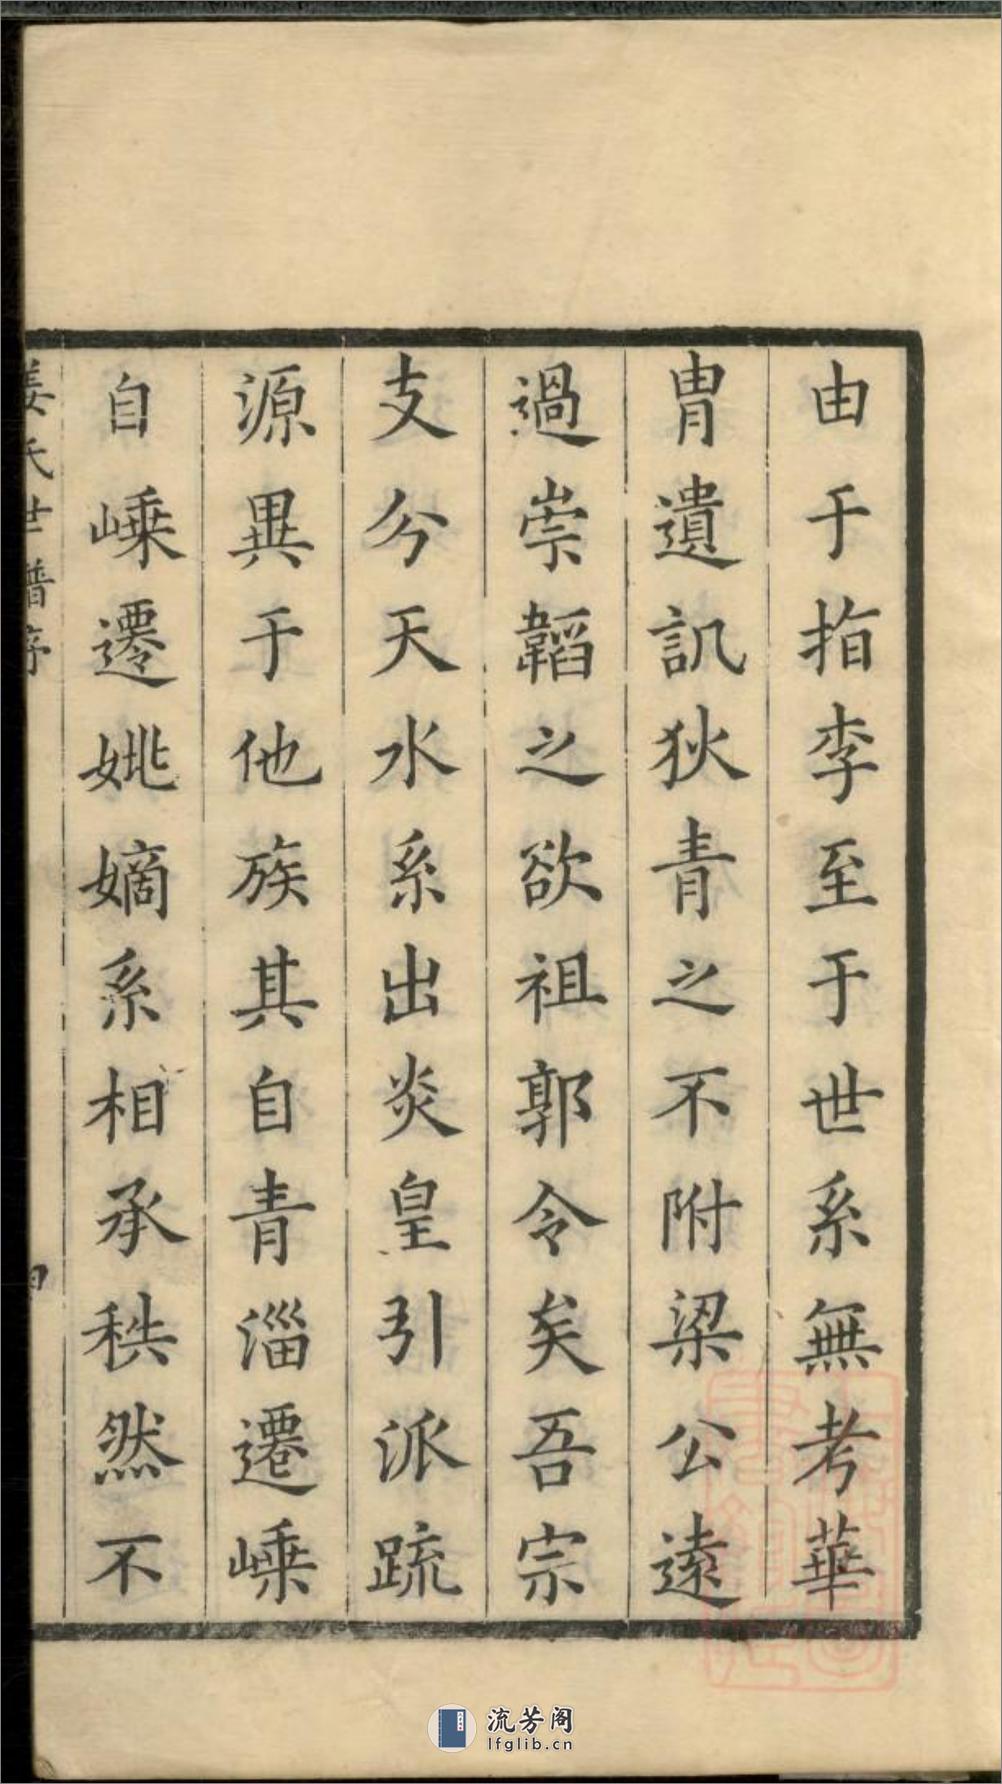 由于指李至于世系無考華
胄遺譏狄青之不附梁公遠
過崇韜之欲祖郭令矣吾宗
支分天水系出炎皇引派疏
源異于他族其自青淄遷嵊
自嵊遷姚嫡系相承秩然不
姜氏世譜序
流芳阁
lfglib.cn